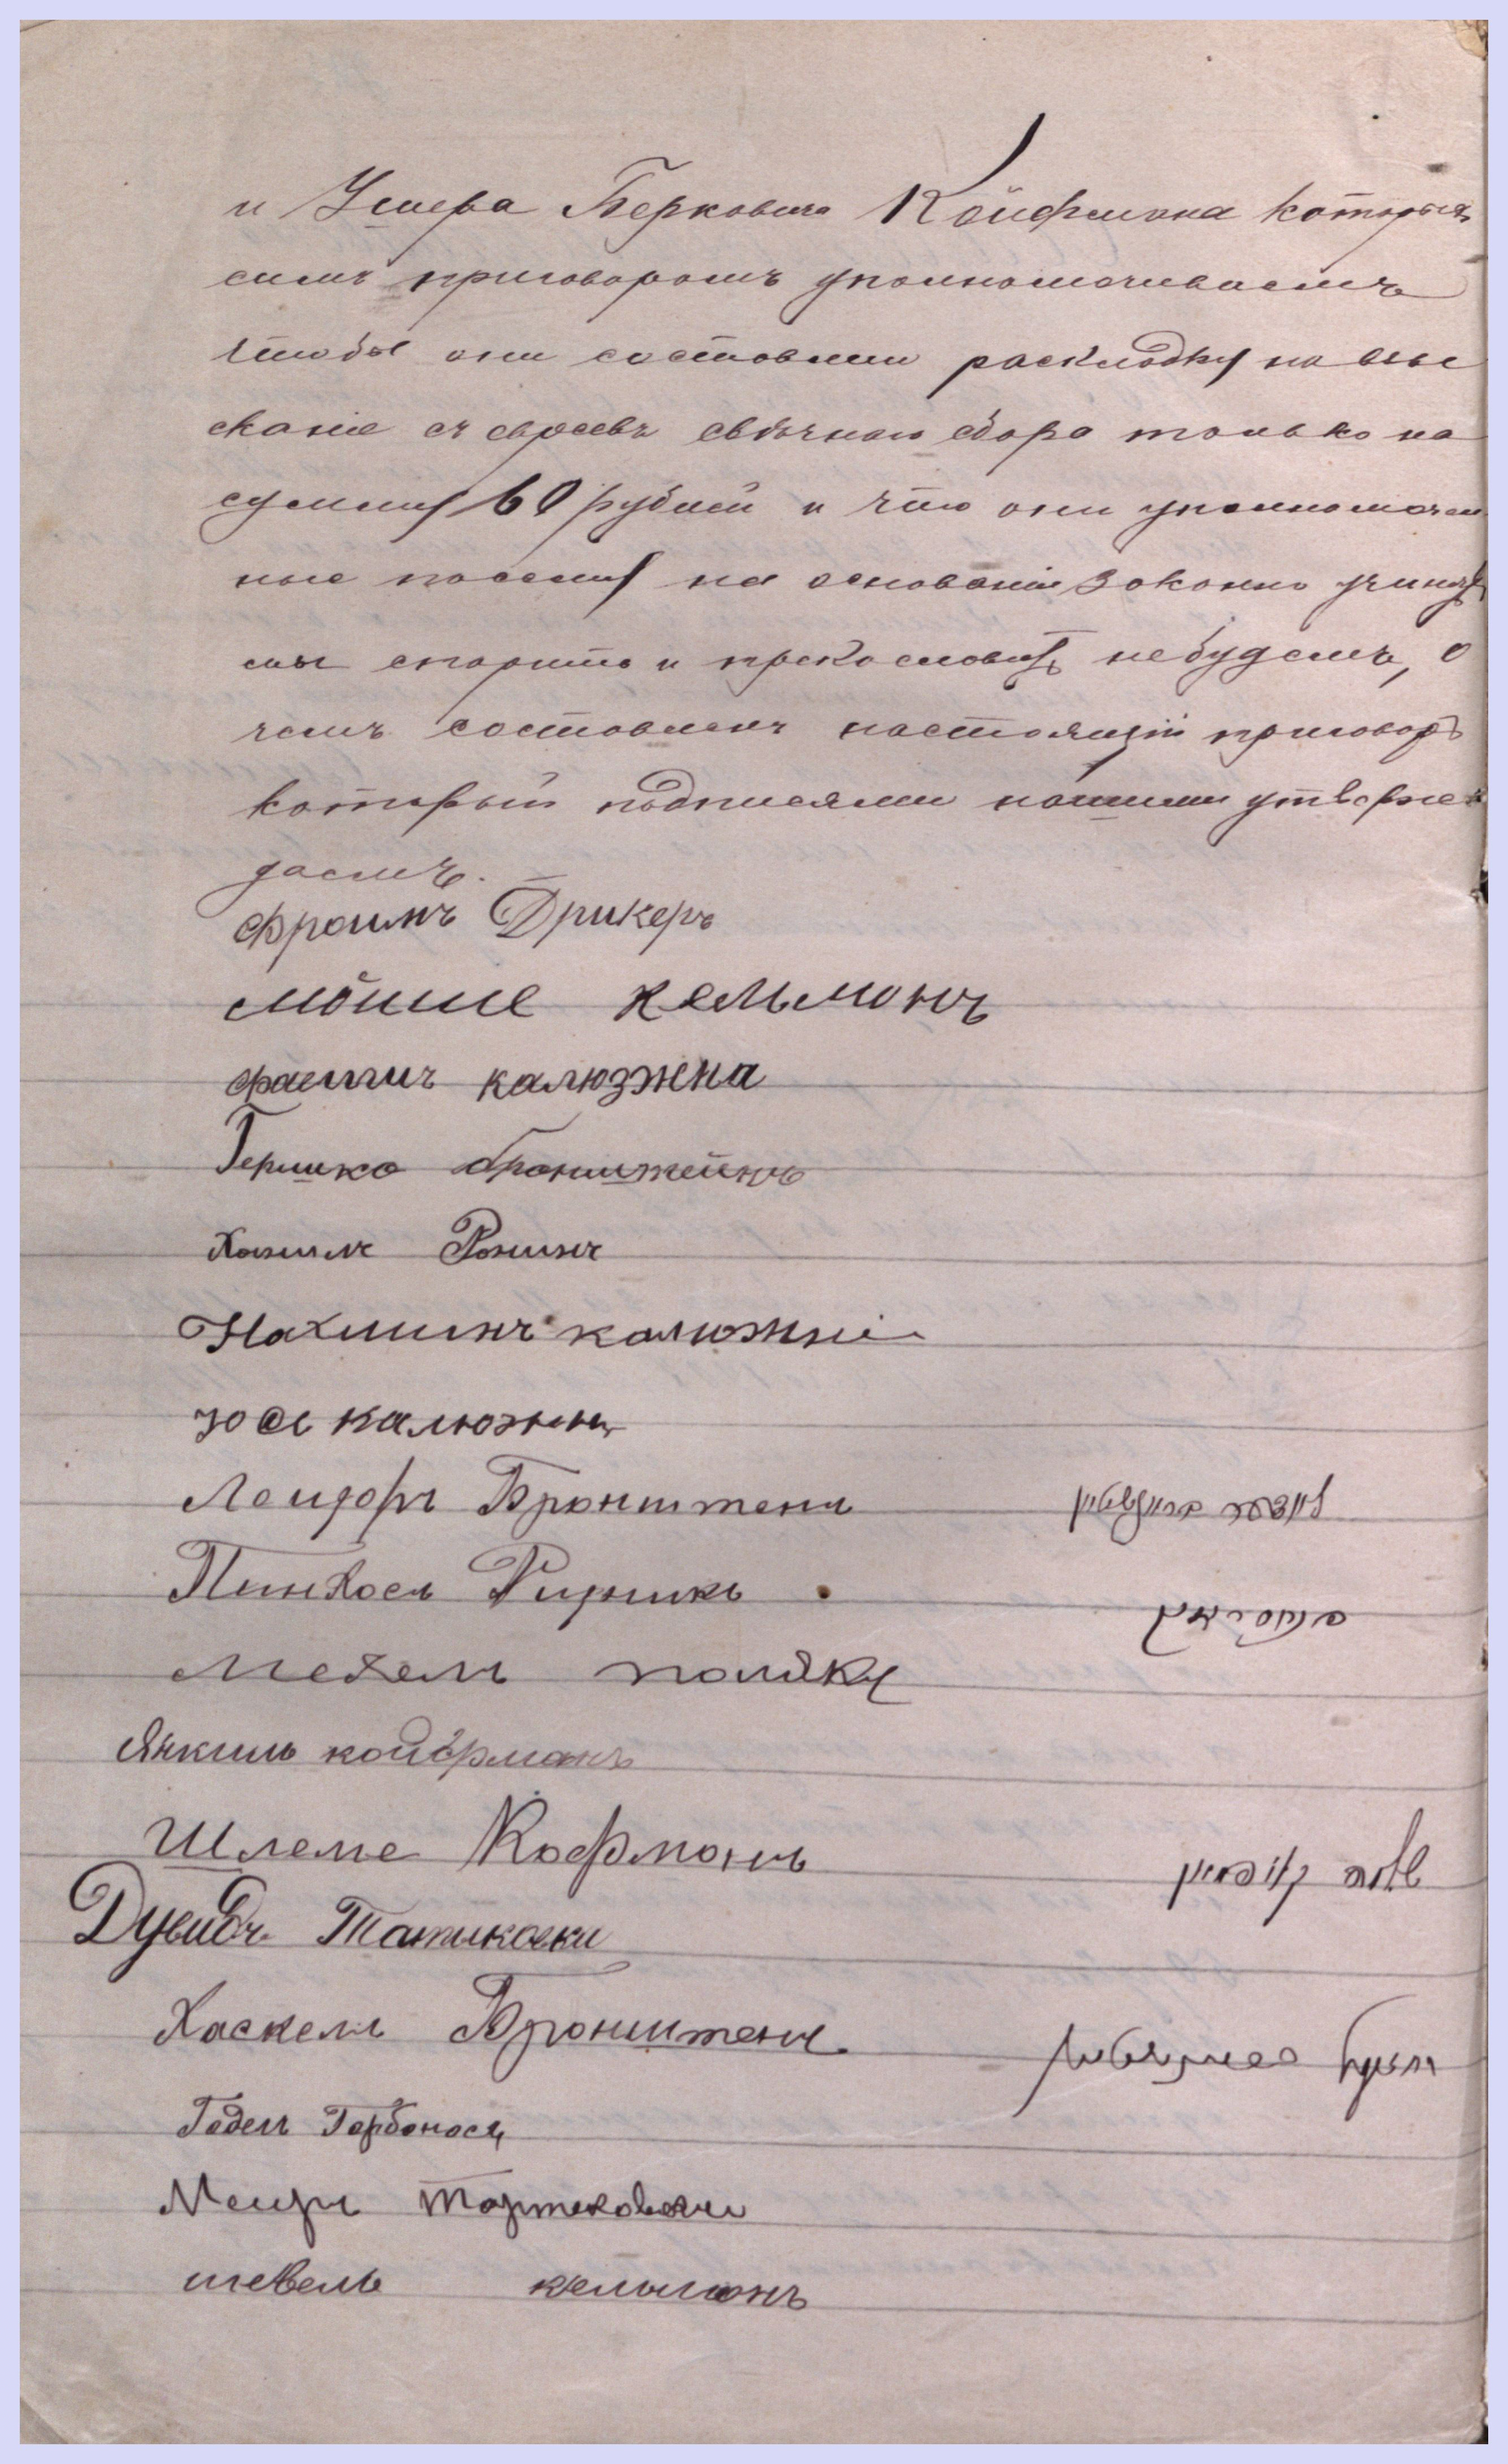 и Ушера Берковича Койфмана которыхъ
симъ приговоромъ уполномочиваемъ
чтобы они составили раскладку на взы
сканіе съ евреевъ свѣчнаго сбора только на
сумму 60 рублей и что они уполномочен
ные по сему на основаніи закона учинятъ
мы спорить и прекословить небудемъ, о
чемъ составленъ настоящій приговоръ
который подписями нашими утверж
даемъ.
Фроимъ Дрикеръ
Мошше Кельманъ
калюзжна
Гершко бронштейнъ
Хаимъ Ронинъ
Нахманъ калюжні
иось калюжны
Лейзоръ Бронштенъ
Пинхосъ Ризникъ
Мехель поляку
Янкиль койфманъ
Шлеме Кофманъ שלמה קויפמאן
Дувидъ Татиковски
Хаскель Бронштенъ
Годель Гарбоносъ
Меиръ
шевель кельманъ